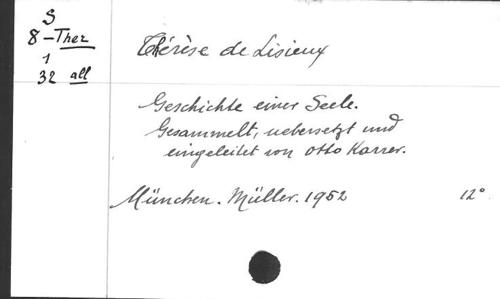 S
8-Ther
1
32 all
Thérèse de Lisieux
Geschichte einer Seele.
Gesammelt, uebersetzt und
eingeleitet von Otto Karrer.
München. Müller. 1952 12°